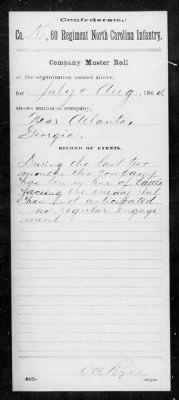 Confederate,
Co. K, 60 Regiment North Carolina Infantry.
Company Muster Roll
of the organization named above,
for July & Aug, 1864.
shows station of company,
Near Atlanta,
Georgia.
RECORD OF EVENTS.
During the last two
months the Company
has ben in line of battle
faceing the enemy but
has not anticipated
no regular engage
ment.